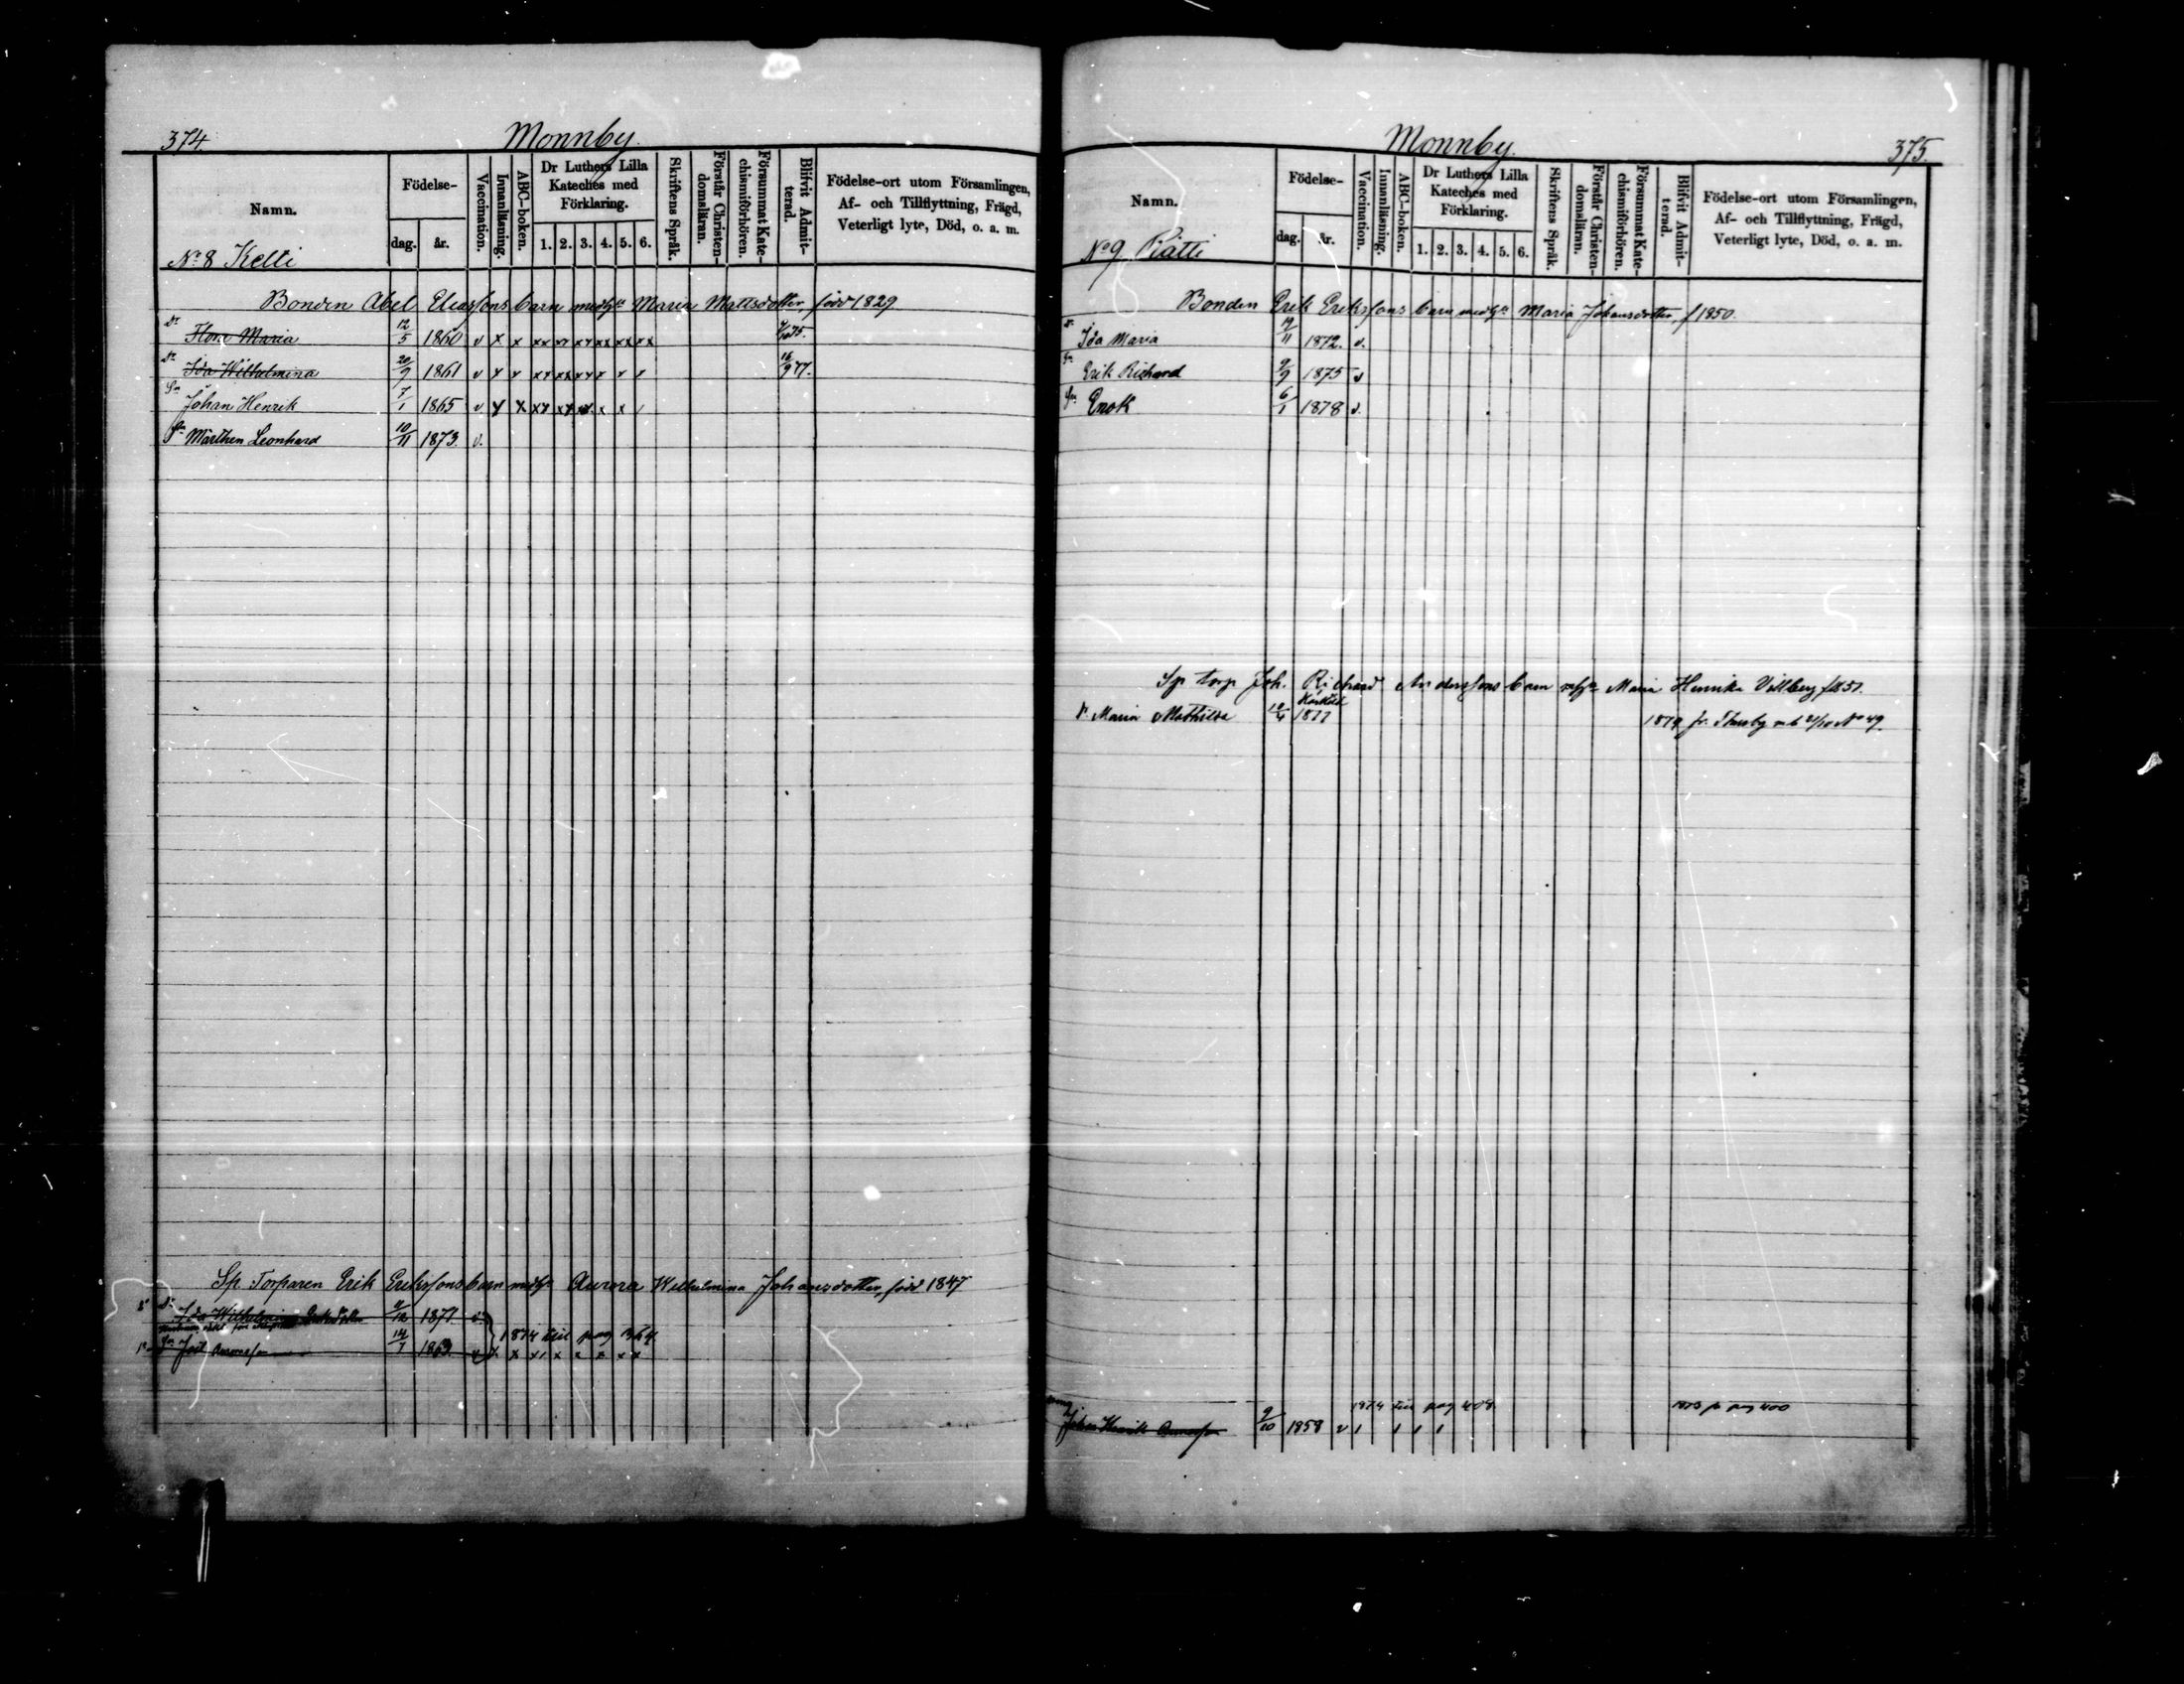 374.
Monnby.
Namn.
Födelse-
dag. år.
Vaccination.
Innanläsning.
ABC-boken.
Dr Luthers Lilla Kateches med Förklaring.
1. 2. 3. 4. 5. 6.
Skriftens Språk.
Förstår Christendomsläran.
Försummat Katechismiförhören.
Blifvit Admitterad.
Födelse-ort utom Församlingen,
Af- och Tillflyttning, Frägd,
Veterligt lyte, Död, o. a. m.
No 8 Kelli
Bonden Abel Eliassons barn med hu Maria Mattsdotter, född 1829
Dr Flora Maria 12/5 1860 v x x xx xx xx xx xx xx 75.
Dr Ida Wilhelmina 20/9 1861 v x x xx xx xx x x x 16/9 77.
Sn Johan Henrik 7/1 1865 v x x xx xx x x /
Sn Marthen Leonhard 10/11 1873. v.
Sp. Torparen Erik Erikssons barn med hu Aurora Wilhelmina Johansdotter, född 1847
Dr Ida Wilhelmina 1871.
1874 till pag 364.
Sn Joel 14/7 1863. v x x x x x x x x
Monnby.
375.
Namn.
Födelse-
dag. år.
Vaccination.
Innanläsning.
ABC-boken.
Dr Luthers Lilla Kateches med Förklaring.
1. 2. 3. 4. 5. 6.
Skriftens Språk.
Förstår Christendomsläran.
Försummat Katechismiförhören.
Blifvit Admitterad.
Födelse-ort utom Församlingen,
Af- och Tillflyttning, Frägd,
Veterligt lyte, Död, o. a. m.
No 9 Rätti
Bonden Erik Erikssons barn med hu Maria Johansdotter, f 1850.
Dr Ida Maria 1872. v.
Sn Erik Richard 9/9 1875 v
Sn Enok 6/1 1878 v.
Sp torp Joh. Richard Anderssons barn m hu Maria Henrika Villberg f 1851.
Dr Maria Mathilda 1877 1879 fr. Thusby No 49.
1874 till pag 408.
1873 fr pag 400
Johan Henrik 9/10 1858 v / / / /